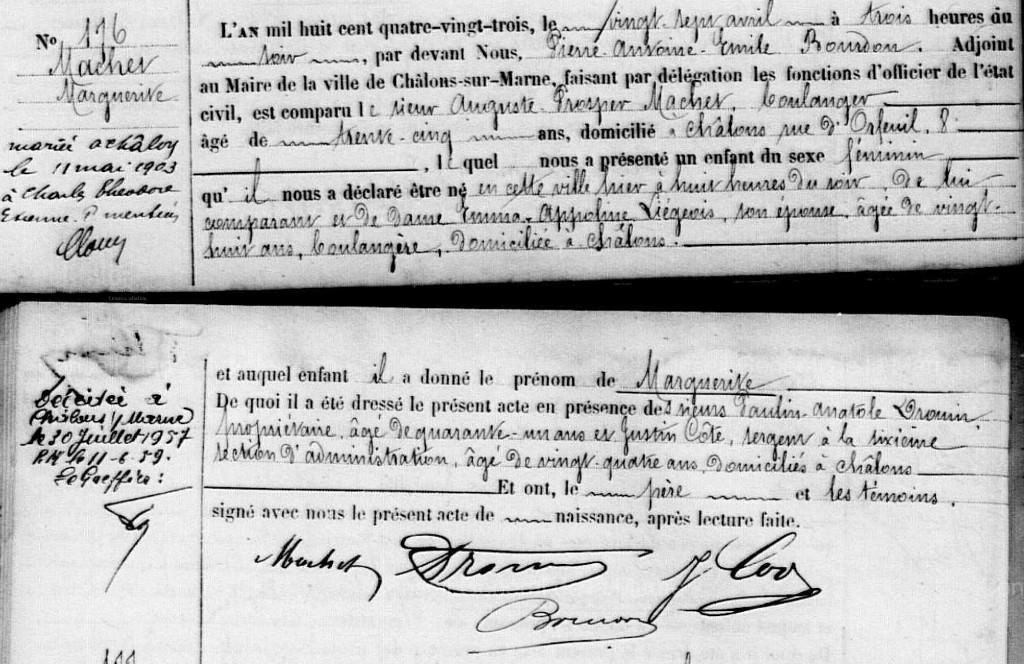 No 176
Machet
Marguerite
mariée a chalons
le 11 mai 1903
à Charles Theodore
Etienne
L'AN mil huit cent quatre-vingt-trois, le vingt-sept avril à trois heures du
soir, par devant Nous, Pierre-Antoine-Emile Bourdon, Adjoint
au Maire de la ville de Châlons-sur-Marne, faisant par délégation les fonctions d'officier de l'état
civil, est comparu le sieur Auguste-Prosper Machet, boulanger
âgé de trente-cinq ans, domicilié à Châlons rue d'Orfeuil, 8
, lequel nous a présenté un enfant du sexe féminin
qu'il nous a déclaré être né en cette ville hier à huit heures du soir, de lui
comparant et de dame Emma-Appoline Liégeois, son épouse, âgée de vingt-
huit ans, boulangère, domiciliée à Châlons.
Décédée à
Châlons s/Marne
le 30 Juillet 1957
11-6-59.
Le Greffier :
et auquel enfant il a donné le prénom de Marguerite
De quoi il a été dressé le présent acte en présence des sieurs Paulin-Anatole Drouin,
propriétaire, âgé de quarante-un ans et Justin Côte, sergent à la sixième
section d'administration, âgé de vingt-quatre ans, domiciliés à Châlons
Et ont, le père et les témoins,
signé avec nous le présent acte de naissance, après lecture faite.
Machet Drouin J. Cote
Bourdon